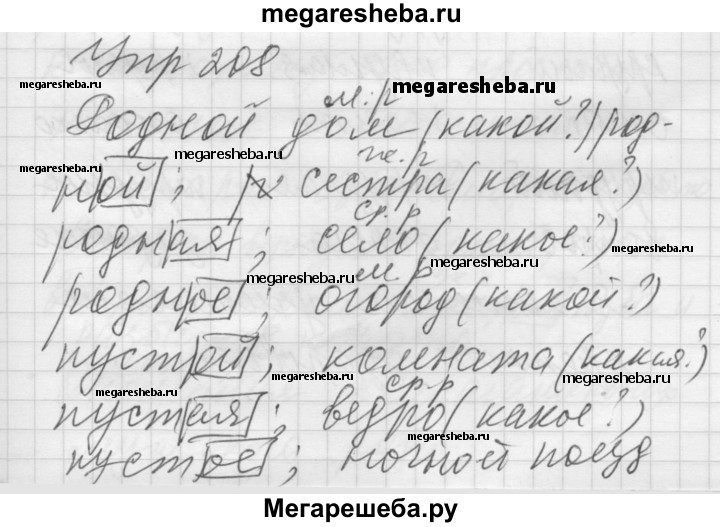 megaresheba.ru
Упр 208
megaresheba.ru
м.р
megaresheba.ru
Родной дом (какой?) род-
megaresheba.ru
же.р
megaresheba.ru
ной; сестра (какая?)
ср.р
родная; село (какое?)
megaresheba.ru
м р
megaresheba.ru
родное; огород (какой?)
megaresheba.ru
пустой; комната (какая?)
megaresheba.ru
megaresheba.ru
megaresheba.ru
ср.р
пустая; ведро (какое?)
megaresheba.ru
пустое; ночной поезд
Мегарешеба.ру